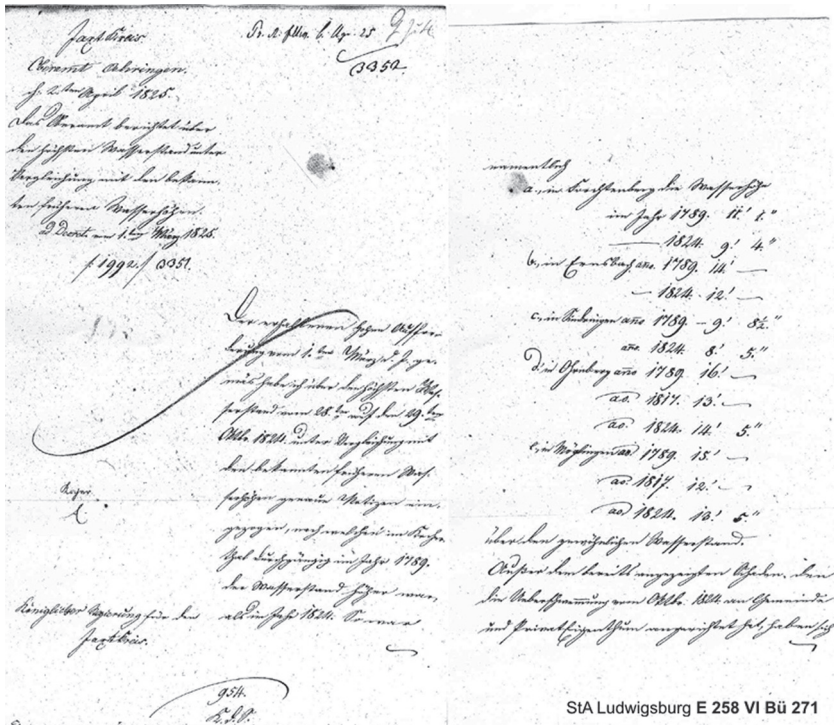 Jaxt Kreis.
Oberamt Oehringen.
d. 2ten April 1825.
Das Oberamt berichtet über
den höchsten Wasserstand unter
Vergleichung mit den bekann-
ten früheren Wasserhöhen.
ad Decret. vom 1. ten März 1825.
1992./3351.
Apr. 25
3352
Der erhaltenen hohen Auffor-
derung vom 1. ten März d. J. ge-
mäs habe ich über den höchsten Was-
serstand vom 28. ten auf den 29. ten
Oktbr. 1824. unter Vergleichung mit
den bekannten früheren Was-
serhöhen genaue Notizen ein-
gezogen, nach welchen im Kocher-
thal durchgängig im Jahr 1789.
der Wasserstand höher war,
als im Jahr 1824. So war
Königlicher Regierung für den
Jaxtkreis.
954.
namentlich
a., in Forchtenberg die Wasserhöhe
im Jahr 1789. 11' 1."
— 1824. 9' 4."
b., in Ernsbach ano. 1789. 14' —
— 1824. 12' —
c., in Sindringen ano 1789 – 9' 8½"
ano. 1824. 8' 5."
d. in Ohrnberg ano 1789. 16' —
ao. 1817. 13' —
ao. 1824. 14' 5."
e., in Möglingen ao. 1789. 15' —
ao. 1817. 12' —
ao. 1824. 13' 5."
über den gewöhnlichen Wasserstand.
Außer dem bereits angezeigten Schaden, den
die Ueberschwemmung vom Oktbr. 1824. an Gemeinde
und Privat Eigenthum angerichtet hat, haben sich
StA Ludwigsburg E 258 VI Bü 271